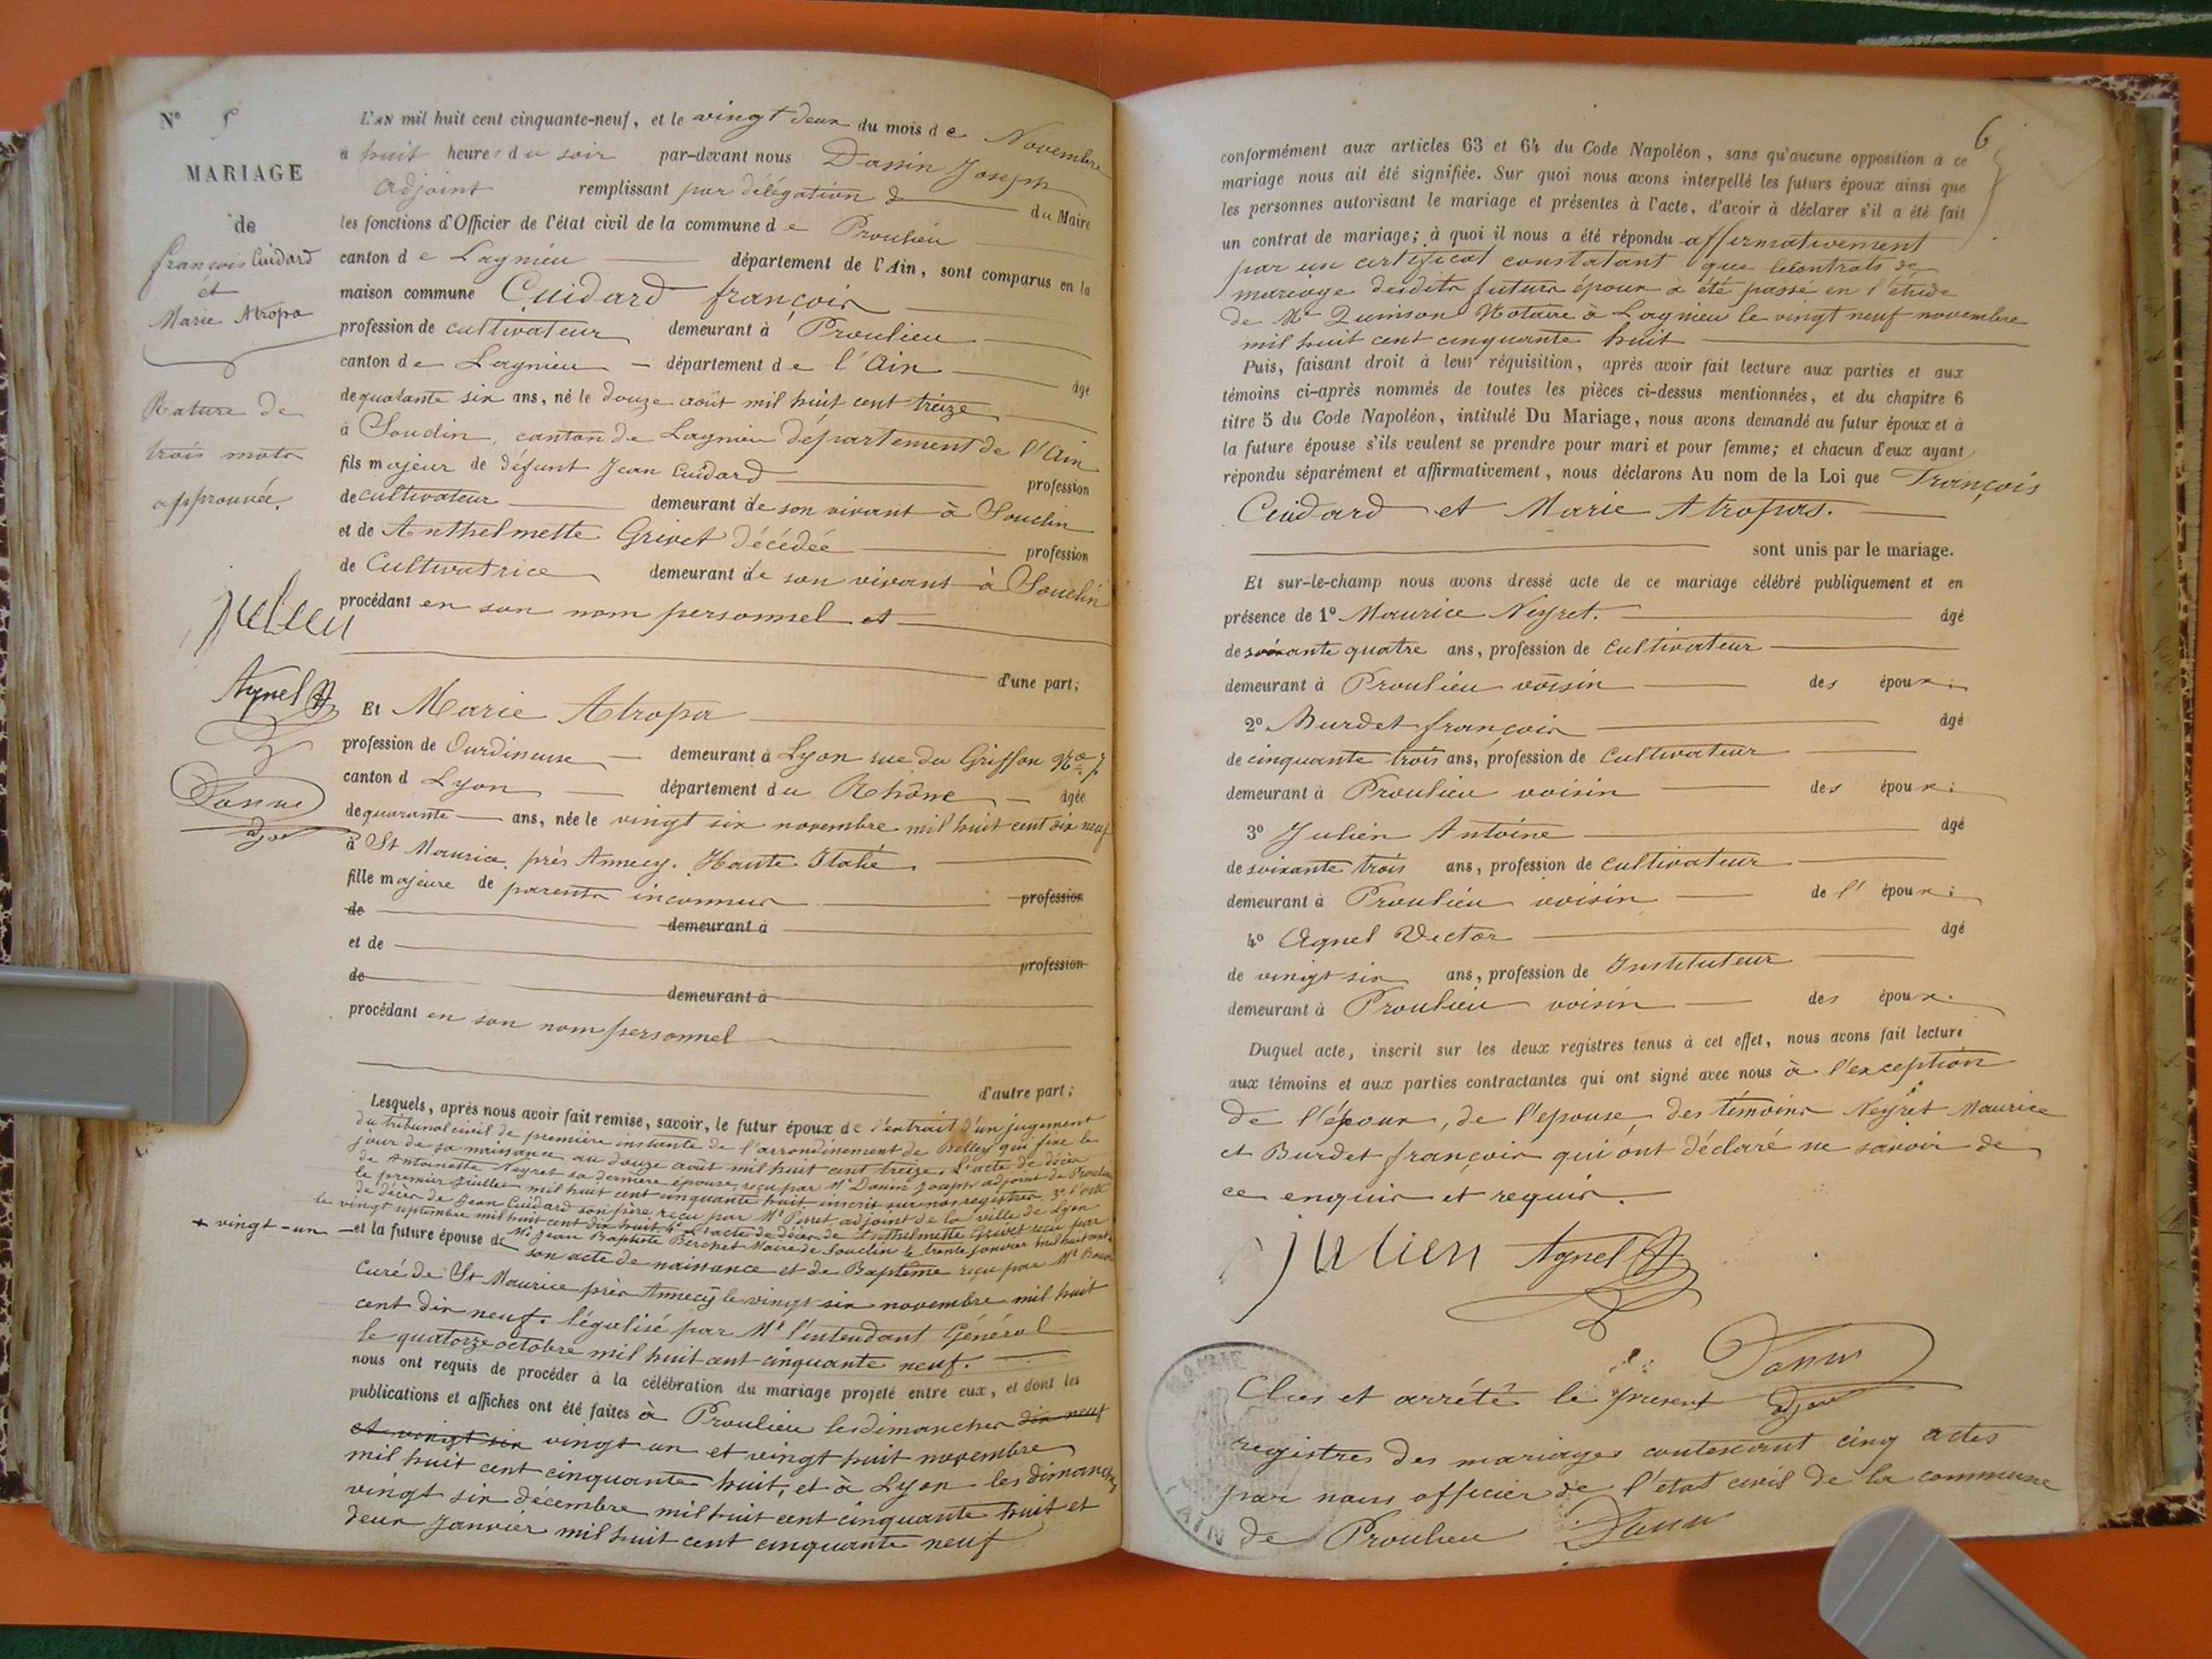 N° 5
MARIAGE
de
françois Cuidard
et
Marie Atropa
Rature de
trois mots
approuvée.
Julien
Agnel
adj
L'AN mil huit cent cinquante-neuf, et le vingt deux du mois de Novembre
à huit heures du soir par-devant nous Dannin Joseph
Adjoint remplissant par délégation d du Maire
les fonctions d'Officier de l'état civil de la commune de Proulieu
canton de Lagnieu département de l'Ain, sont comparus en la
maison commune Cuidard françois
profession de cultivateur demeurant à Proulieu
canton de Lagnieu département de l'Ain âgé
de quatante six ans, né le douze août mil huit cent treize
à Souclin, canton de Lagnieu département de l'Ain
fils majeur de défunt Jean Cuidard profession
de cultivateur demeurant de son vivant à Souclin
et de Anthelmette Grivet décédée profession
de Cultivatrice demeurant de son vivant à Souclin
procédant en son nom personnel et
d'une part;
Et Marie Atropa
profession de Ourdineuse demeurant à Lyon rue du Griffon No 7
canton d Lyon département du Rhône âgée
de quarante ans, née le vingt six novembre mil huit cent dix neuf
à St Maurice, près Annecy. Haute Italie
fille majeure de parents inconnus profession
de demeurant à
et de profession
de demeurant à
procédant en son nom personnel
d'autre part;
Lesquels, après nous avoir fait remise, savoir, le futur époux de l'extrait d'un jugement
du tribunal civil de première instante de l'arrondinement de Belley qui fixe le
jour de sa naissance au douze août mil huit cent treize. L'acte de décès
de Antoinette Neyret sa dernière épouse, reçu par Mr Dannin Joseph adjoint de Proulieu
le premier Juillet mil huit cent cinquante huit inscrit sur nos registres. 3° l'acte
de décès de Jean Cuidard son père reçu par Mr Perret adjoint de la ville de Lyon
le vingt septembre mil huit cent dix huit 4° l'acte de décès de Anthelmette Grivet reçu par
Mr Jean Baptiste Berchet Maire de Souclin le trente janvier mil huit cent
+ vingt-un et la future épouse de son acte de naissance et de Baptême reçu par Mr
Curé de St Maurice près Annecy le vingt six novembre mil huit
cent dix neuf. légalisé par Mr l'intendant Général
le quatorze octobre mil huit cent cinquante neuf.
nous ont requis de procéder à la célébration du mariage projeté entre eux, et dont les
publications et affiches ont été faites à Proulieu les dimanches dix neuf
et vingt six vingt un et vingt huit novembre
mil huit cent cinquante huit, et à Lyon les dimanches
vingt six décembre mil huit cent cinquante huit et
deux Janvier mil huit cent cinquante neuf
6
conformément aux articles 63 et 64 du Code Napoléon, sans qu'aucune opposition à ce
mariage nous ait été signifiée. Sur quoi nous avons interpellé les futurs époux ainsi que
les personnes autorisant le mariage et présentes à l'acte, d'avoir à déclarer s'il a été fait
un contrat de mariage; à quoi il nous a été répondu affirmativement
par un certificat constatant que le contrats de
mariage desdits futurs époux a été passé en l'étude
de Me Quinson Notaire à Lagnieu le vingt neuf novembre
mil huit cent cinquante huit
Puis, faisant droit à leur réquisition, après avoir fait lecture aux parties et aux
témoins ci-après nommés de toutes les pièces ci-dessus mentionnées, et du chapitre 6
titre 5 du Code Napoléon, intitulé Du Mariage, nous avons demandé au futur époux et à
la future épouse s'ils veulent se prendre pour mari et pour femme; et chacun d'eux ayant
répondu séparément et affirmativement, nous déclarons Au nom de la Loi que François
Cuidard et Marie Atropas.
sont unis par le mariage.
Et sur-le-champ nous avons dressé acte de ce mariage célébré publiquement et en
présence de 1° Maurice Neyret. âgé
de soixante quatre ans, profession de Cultivateur
demeurant à Proulieu voisin des époux;
2° Burdet françois âgé
de cinquante trois ans, profession de Cultivateur
demeurant à Proulieu voisin des époux;
3° Julien Antoine âgé
de soixante trois ans, profession de Cultivateur
demeurant à Proulieu voisin de l'époux;
4° Agnel Victor âgé
de vingt six ans, profession de Instituteur
demeurant à Proulieu voisin des époux.
Duquel acte, inscrit sur les deux registres tenus à cet effet, nous avons fait lecture
aux témoins et aux parties contractantes qui ont signé avec nous à l'exception
de l'époux, de l'epouse, des témoins Neyret Maurice
et Burdet françois qui ont déclaré ne savoir de
ce enquis et requis.
Julien Agnel
adj
Clus et arrété le present
registres des mariages contenant cinq actes
par nous officier de l'etat civil de la commune
de Proulieu
MAIRIE
AIN